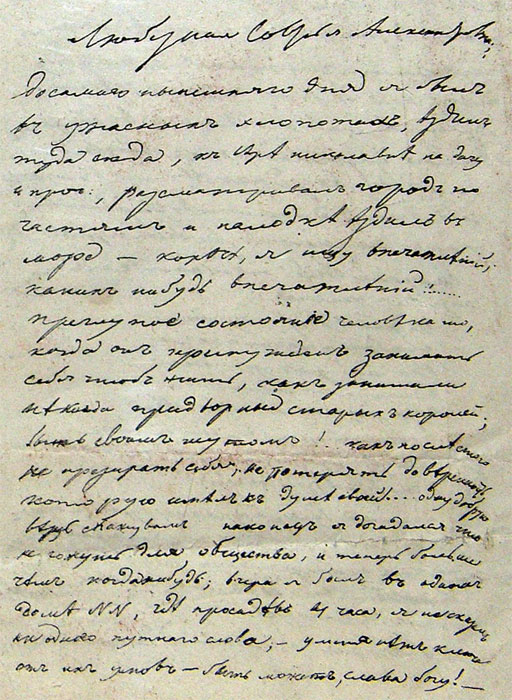 Любезная Софья Александровна;
До самаго нынешняго дня я былъ
въ ужасныхъ хлопотахъ, ѣздилъ
туда сюда, къ Вѣрѣ Николавнѣ на дачу
и проч:, разсматривалъ городъ по
частямъ и на лодкѣ ѣздилъ въ
море – короче, я ищу впечатлѣній,
какихъ нибудь впечатлѣній!......
преглупое состояніе человѣка то,
когда онъ принужденъ занимать
себя чтобъ жить, какъ занимали
нѣкогда придворные старыхъ королей;
быть своимъ шутомъ!... какъ послѣ этого
не презирать себя; не потерять довѣренность
которую имѣлъ къ душѣ своей... одну добрую
вещь скажу вамъ наконецъ я догадался что
не гожусь для общества, и теперь больше
чѣмъ когда нибудь; вчера я былъ въ одномъ
домѣ NN, гдѣ просидѣвъ 4 часа, я не сказалъ
ни одного путнаго слова; – у меня нѣтъ ключа
отъ ихъ умовъ – быть можетъ, слава богу! –